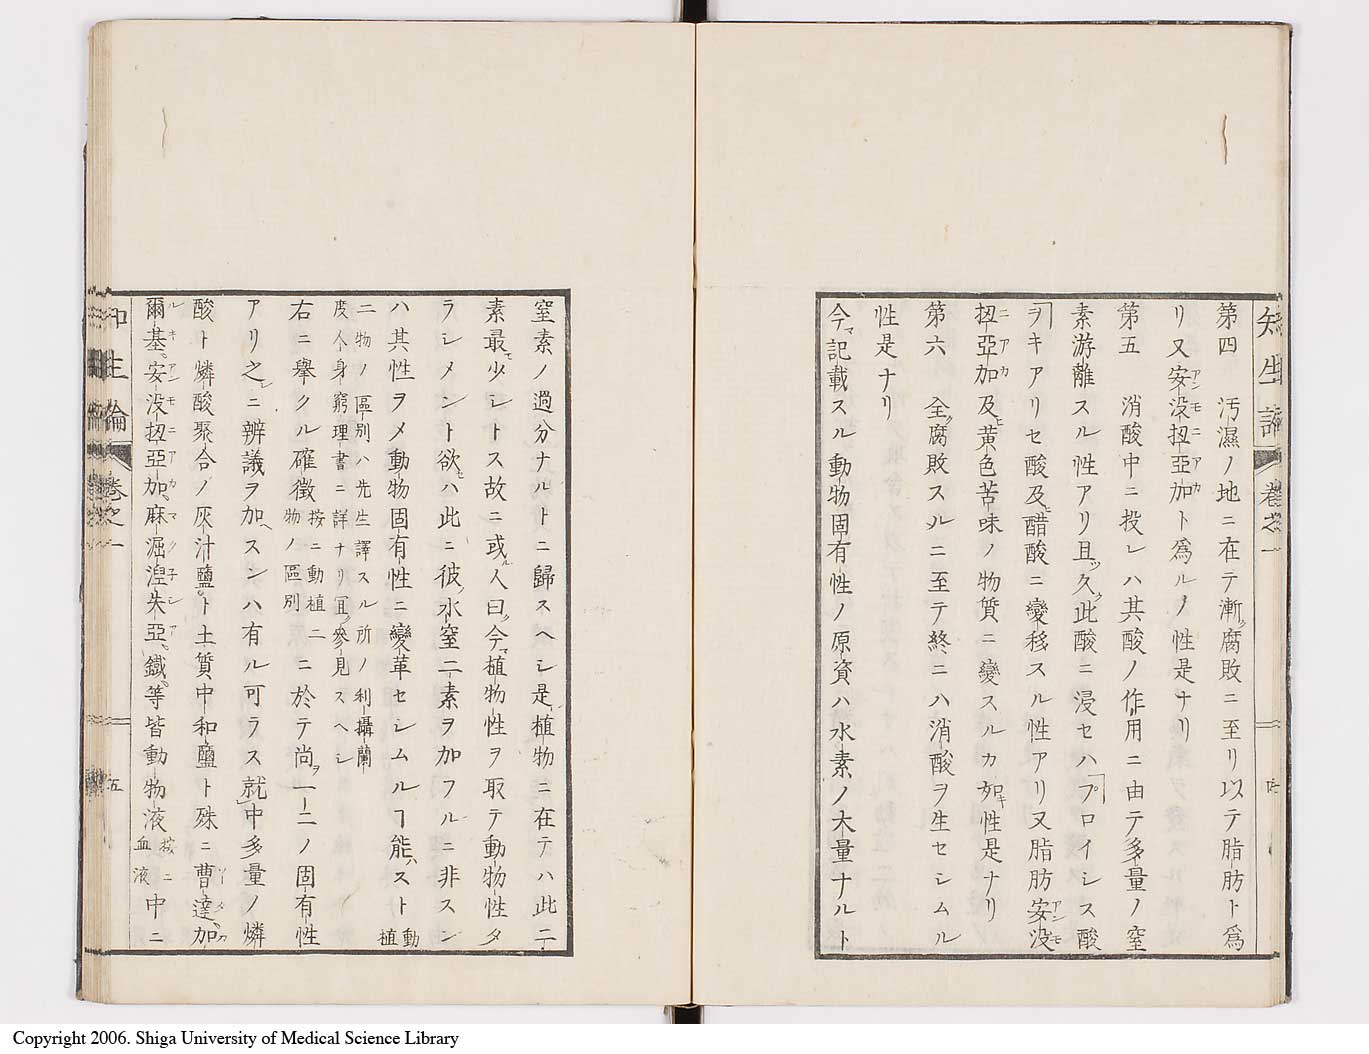 第四　汚濕ノ地ニ在テ漸ク腐敗ニ至リ以テ脂肪ト爲
リ又安没扭亞加ト爲ルノ性是ナリ
第五　消酸中ニ投レハ其酸ノ作用ニ由テ多量ノ窒
素游離スル性アリ且ツ久ク此酸ニ浸セハ「プロイシス酸
ヲキアリセ酸及ヒ醋酸ニ變移スル性アリ又脂肪安没
扭亞加及ヒ黄色苦味ノ物質ニ變スルカ如キ性是ナリ
第六　全ク腐敗スルニ至テ終ニハ消酸ヲ生セシムル
性是ナリ
今マ記載スル動物固有性ノ原資ハ水素ノ大量ナルト
知生論　卷之一
窒素ノ過分ナルトニ歸スヘシ是植物ニ在テハ此二
素最モ少シトス故ニ或ル人曰ク今マ植物性ヲ取テ動物性タ
ラシメント欲セハ此ニ彼ノ水窒二素ヲ加フルニ非スン
ハ其性ヲメ動物固有性ニ變革セシムルヿ能ハスト動植
二物ノ區別ハ先生譯スル所ノ利攝蘭
度人身窮理書ニ詳ナリ冝ク參見スヘシ
右ニ舉クル確徴按ニ動植二物ノ區別ニ於テ尚ヲ一二ノ固有性
アリ之レニ辨議ヲ加ヘスンハ有ル可ラス就中多量ノ燐
酸ト燐酸聚合ノ灰汁鹽ト土質中和鹽ト殊ニ曹達加
爾基安没扭亞加麻倔涅朱亞鐵等皆動物液按ニ血液中ニ
卷之一
五
Copyright 2006. Shiga University of Medical Science Library